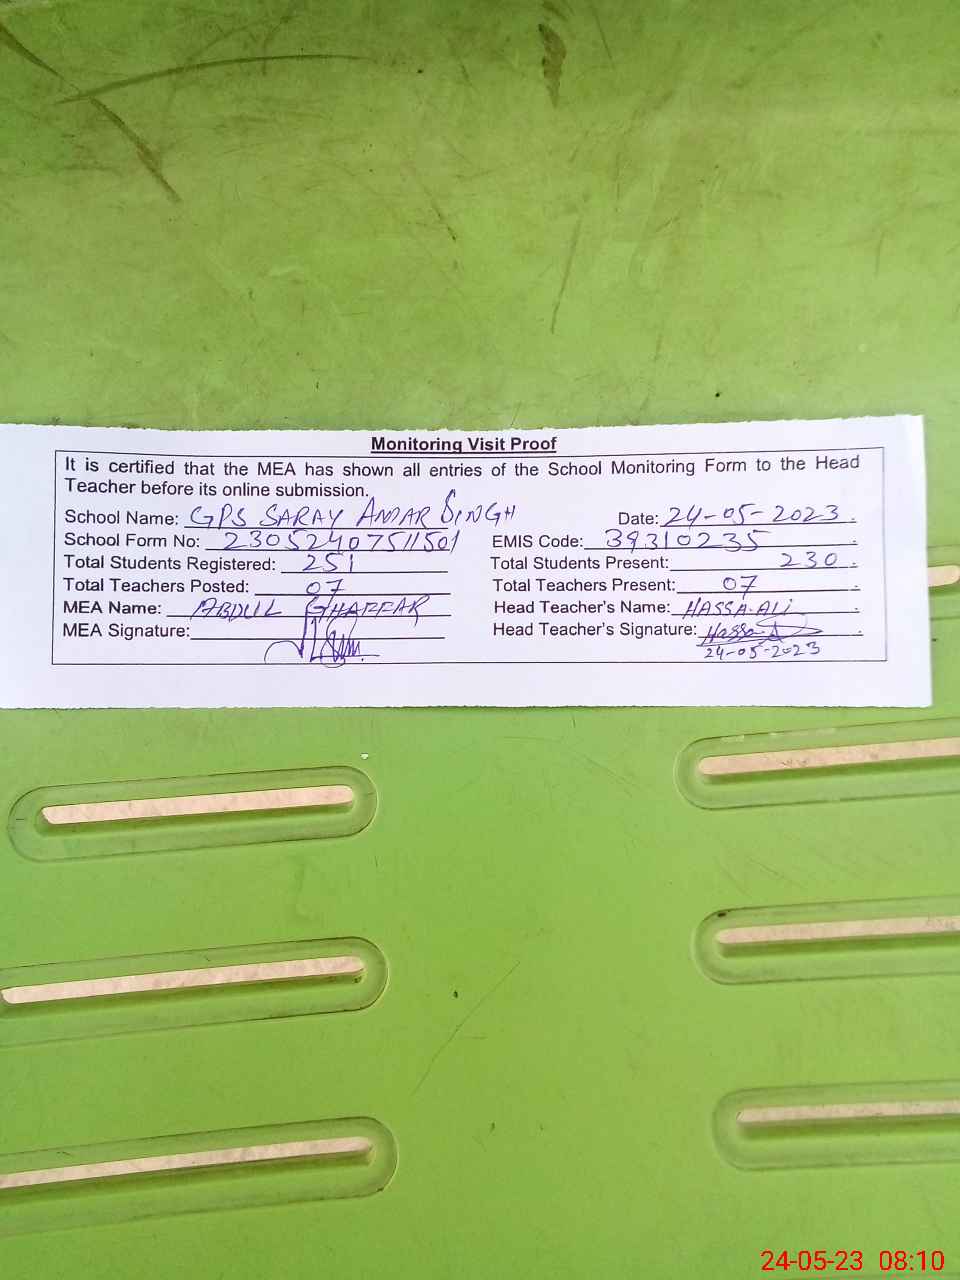 Monitoring Visit Proof
It is certified that the MEA has shown all entries of the School Monitoring Form to the Head
Teacher before its online submission.
School Name: GPS SARAY AMAR SINGH Date: 24-05-2023.
School Form No: 23052407511501 EMIS Code: 39310235.
Total Students Registered: 251 Total Students Present: 230.
Total Teachers Posted: 07 Total Teachers Present: 07.
MEA Name: ABDUL GHAFFAR Head Teacher's Name: HASSA-ALi.
MEA Signature: Head Teacher's Signature:
24-05-2023
24-05-23 08:10